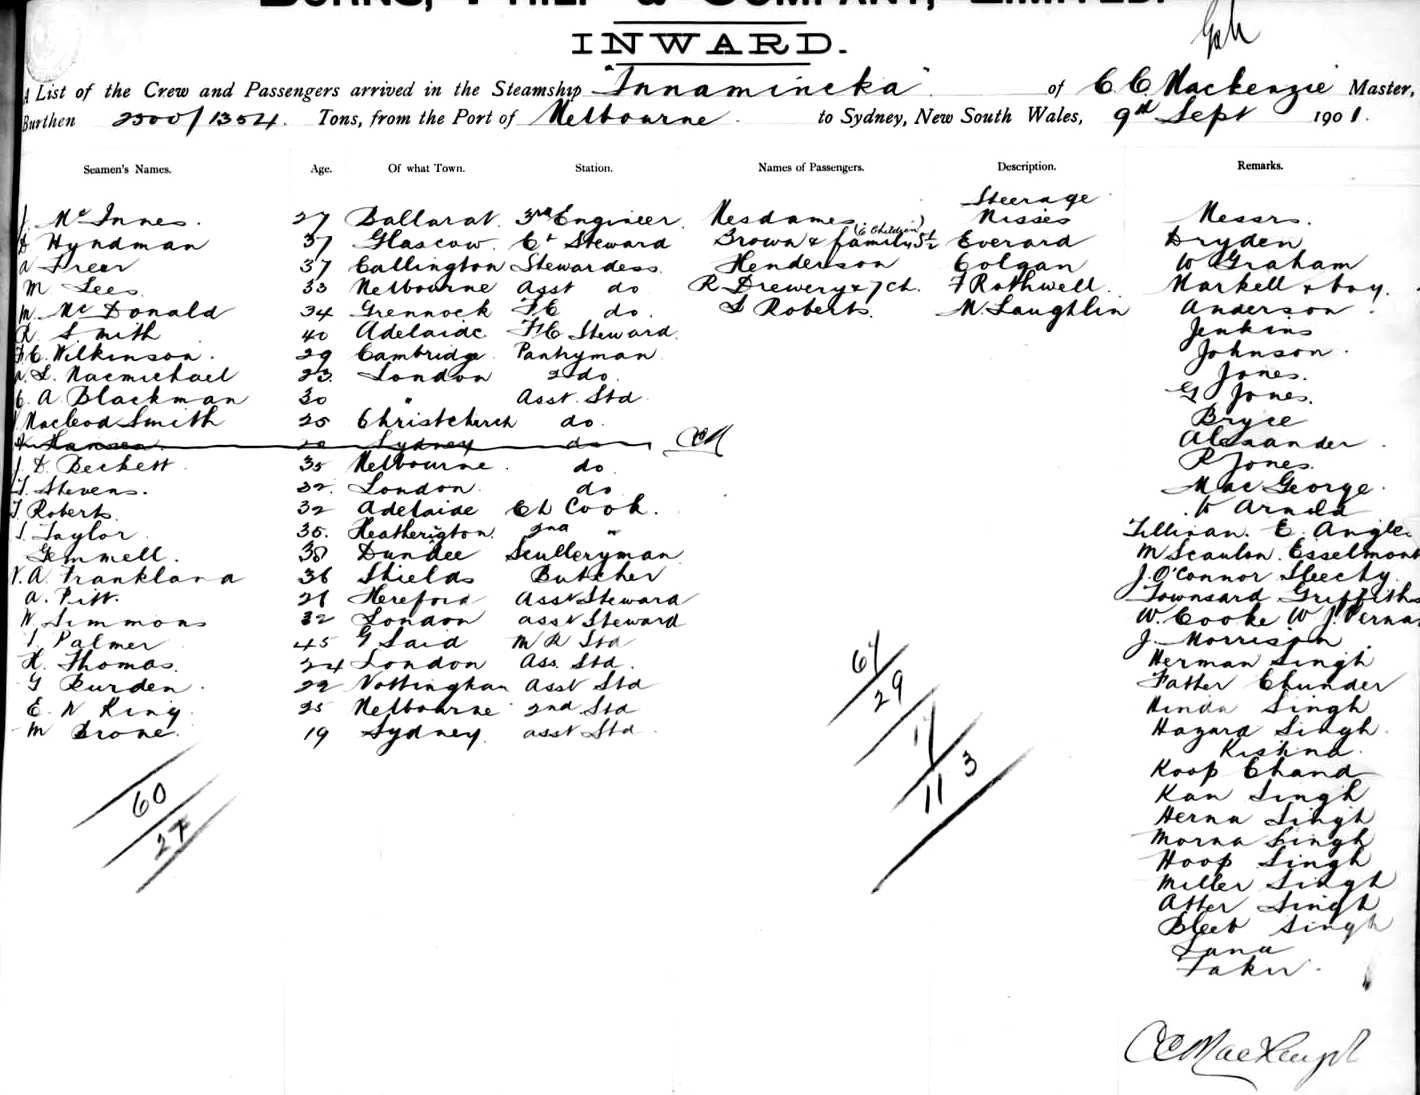 BURNS, PHILP & COMPANY, LIMITED.
INWARD.
A List of the Crew and Passengers arrived in the Steamship "Innamincka" of C C Mackenzie Master,
Burthen 2500/1354. Tons, from the Port of Melbourne to Sydney, New South Wales, 9th Sept 1901.
Seamen's Names. Age. Of what Town. Station. Names of Passengers. Description. Remarks.
Steerage
J Mc Innes. 27 Ballarat 3rd Engineer Mesdames Misses Messrs.
Hyndman 37 Glascow. Ct Steward Brown & family (6 Children) Everard Dryden
Freer 37 Callington Stewardess Henderson Colgan W Graham
M Lees 33 Melbourne Asst do R Drewery & 7 ch. F Rothwell. Markell & boy.
M. Mc Donald 34 Grennock F C do. S Roberts. M Laughlin Anderson.
R Smith 40 Adelaide F C Steward. Jenkins
F. C. Wilkinson. 29 Cambridge Pantryman Johnson.
L. Macmichael 23. London 2 do. Jones.
C. A Blackman 30 " Asst. Std G Jones.
Macleod Smith 25 Christchurch do. Bryce
Hansen Sydney do CCM Alexander.
J. D. Beckett 35 Melbourne. do. R Jones.
Stevens. 32. London do Mac George.
Roberts 32 Adelaide Ch Cook. W
Taylor 35. Heatherington 2nd " E. Angle
Gemmell. 38 Dundee Scullery man M Scanlon. Esselmont
A. Frankland 36 Shields Butcher J. O'Connor Sleechy
A. Pitt. 21 Hereford Asst Steward Townsard Griffiths
W Simmons 32 London asst Steward W. Cooke W J.
Palmer 45 Said M R Std J. Morrison
H. Thomas. 24 London Ass. Std. Herman Singh
G Burden. 22 Nottingham Asst Std Fatter Chunder
E. W King 25 Melbourne 2nd Std Hinda Singh
M Brone. 19 Sydney. asst Std Hazard Singh.
Kishna.
Koop Chand
Kan Singh
Herna Singh
Morna Singh
Hoop Singh
Miller Singh
Atter Singh
Singh
Lana
Faker.
60
27
64
29
17
11 3
CC MacKenzie